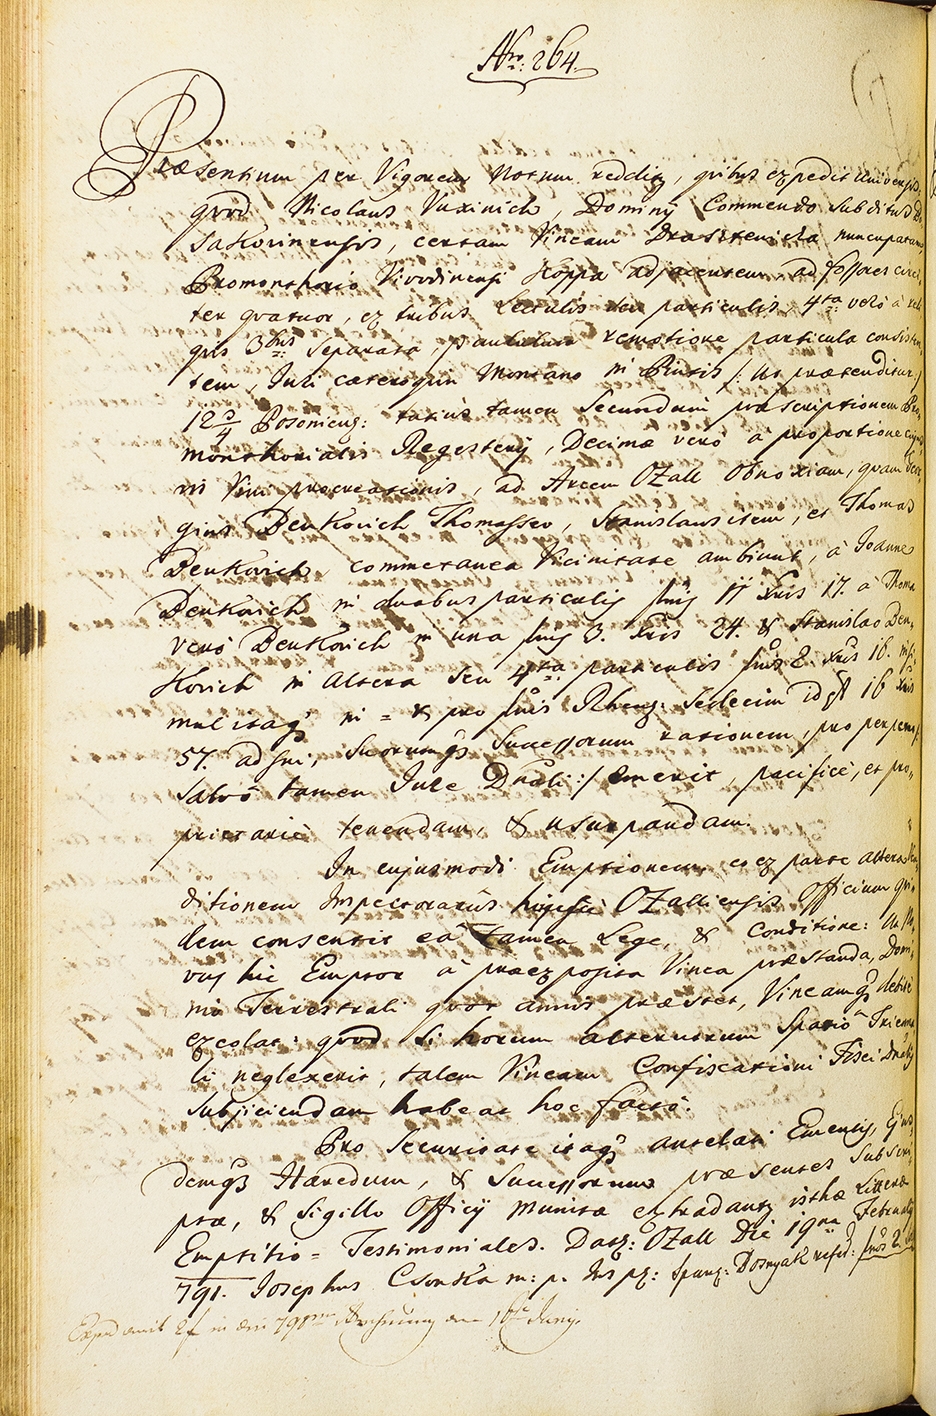 Nro: 264.
Præsentium per Vigorem Notum redditʒ, quibus expedit Universis,
quod Nicolaus Vuxinich, Dominÿ Commendo Subditus
Sakovinensis, certam Vineam Drastenicka nuncupatam,
Promonthorio Vivodinensi Koppa adjacentem ad fossores circi,
ter quatuor, ex tribus Lectulis seu particulis 4ta: verò à reli
quis 3bus: Separata, paululum remotione particula consisten
tem, Juri cæteroquin Montano in Pintis /: Ut prætenditur /
12 3/4 Posoniens: tutius tamen Secundum præscriptionem Pro
monthorialis Regesterÿ, Decimæ verò à proportione cujus
vis Vini procreationis, ad Arcem Ozall Obnoxiam, quam
gius Benkovich Thomassev, Stanislaus item, et Thomas
Benkovich, commetanea Vicinitate ambiunt, à Joanne
Benkovich in duabus particulis flnis 11 xris 17. à Thoma
verò Benkovich in una flnis 3. xris 24. & Stanislao Ben,
kovich in altera seu 4ta: particulis flnis 2 xris 16. insi
mul itaqʒ in = & pro flnis Rhenʒ: Sedecim id est 16 xris
57. ad sui, Suorumqʒ Successorum rationem, pro perpetuo,
salvo tamen Jure Dnali :/ Emerit, pacificè, et pro,
prietariè tenendam, & usurpandam.
In cujusmodi Emptionem, et ex parte altera Ven
ditionem Impetratus Ozalliensis Officium qui
dem consentit eâ tamen Lege, & Conditione: Ut
vus hic Emptor à præexposita Vinea præstanda, Domi,
nio Terrestrali quot annis præstet, Vineamqʒ debitè
excolat: quod Si horum alterutrum Spatiô Trien
li neglexerit, talem Vineam Confiscationi Fisci Dnalis
Subjiciendam habeat hoc facto.
Pro Securitate itaqʒ antelati Ementis, Ejus,
demqʒ Hæredum, & Successorum præsentes Subscri,
ptæ, & Sigillo Officÿ munitæ extradantʒ isthæ Litteræ
Emptitio = Testimoniales. Datʒ: Ozall Die 19na Februarÿ
791. Josephus Csonka m: p.